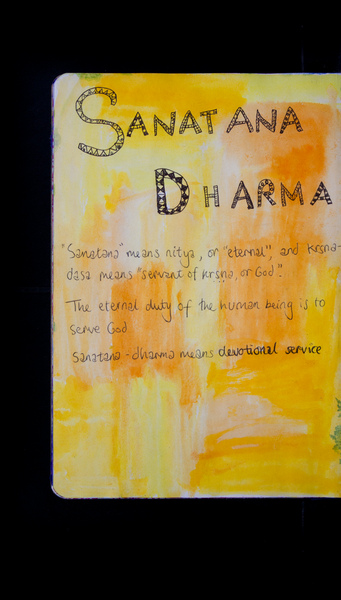 SANATANA
DHARMA
"Sanatana" means nitya, or "eternal", and krsna-
dasa means "servant of krṣṇa, or God".
The eternal duty of the human being is to
serve God
sanatana-dharma means devotional service